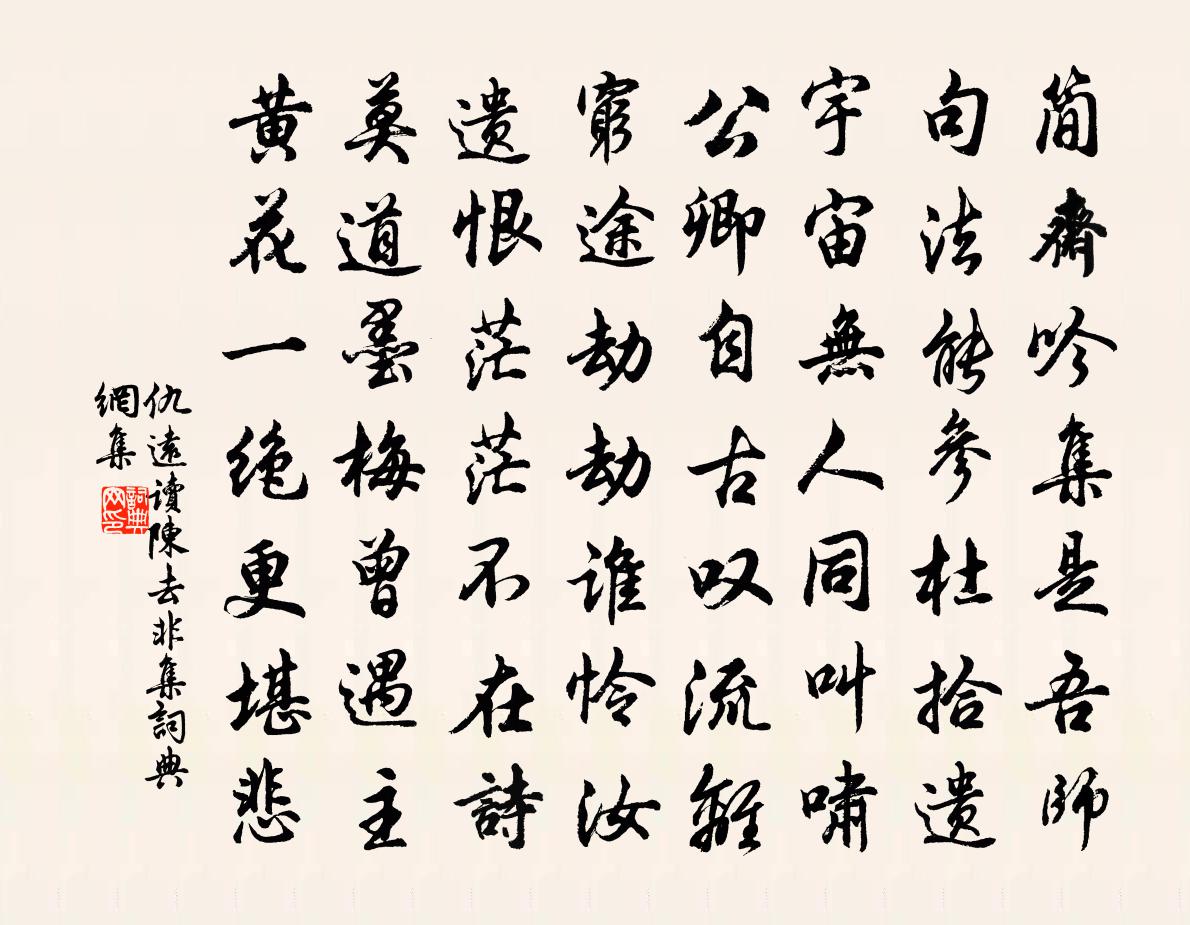 简齋吟集是吾師
句法能參杜拾遗
宇宙無人同叫嘯
公卿自古叹流離
窮途劫劫谁怜汝
遗恨茫茫不在詩
莫道墨梅曾遇主
黄花一绝更堪悲
仇遠讀陳去非集詞典
網集
詞典
网印